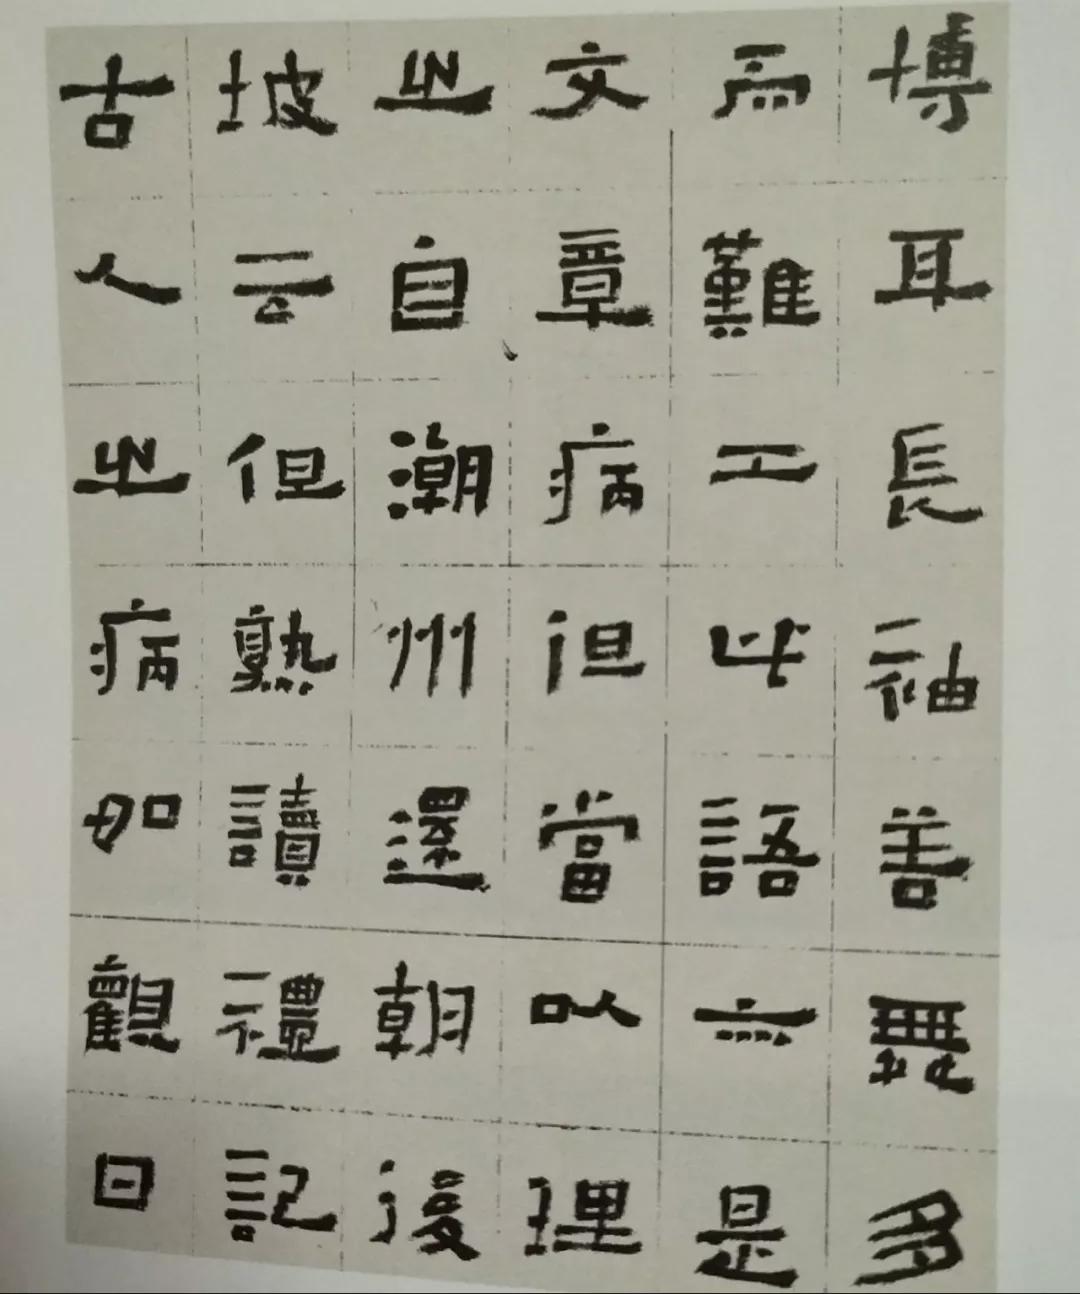 博耳長袖善舞多
而難工此語亦是
文章病但當以理
之自潮州還朝後
坡云但熟讀禮記
古人之病如觀日